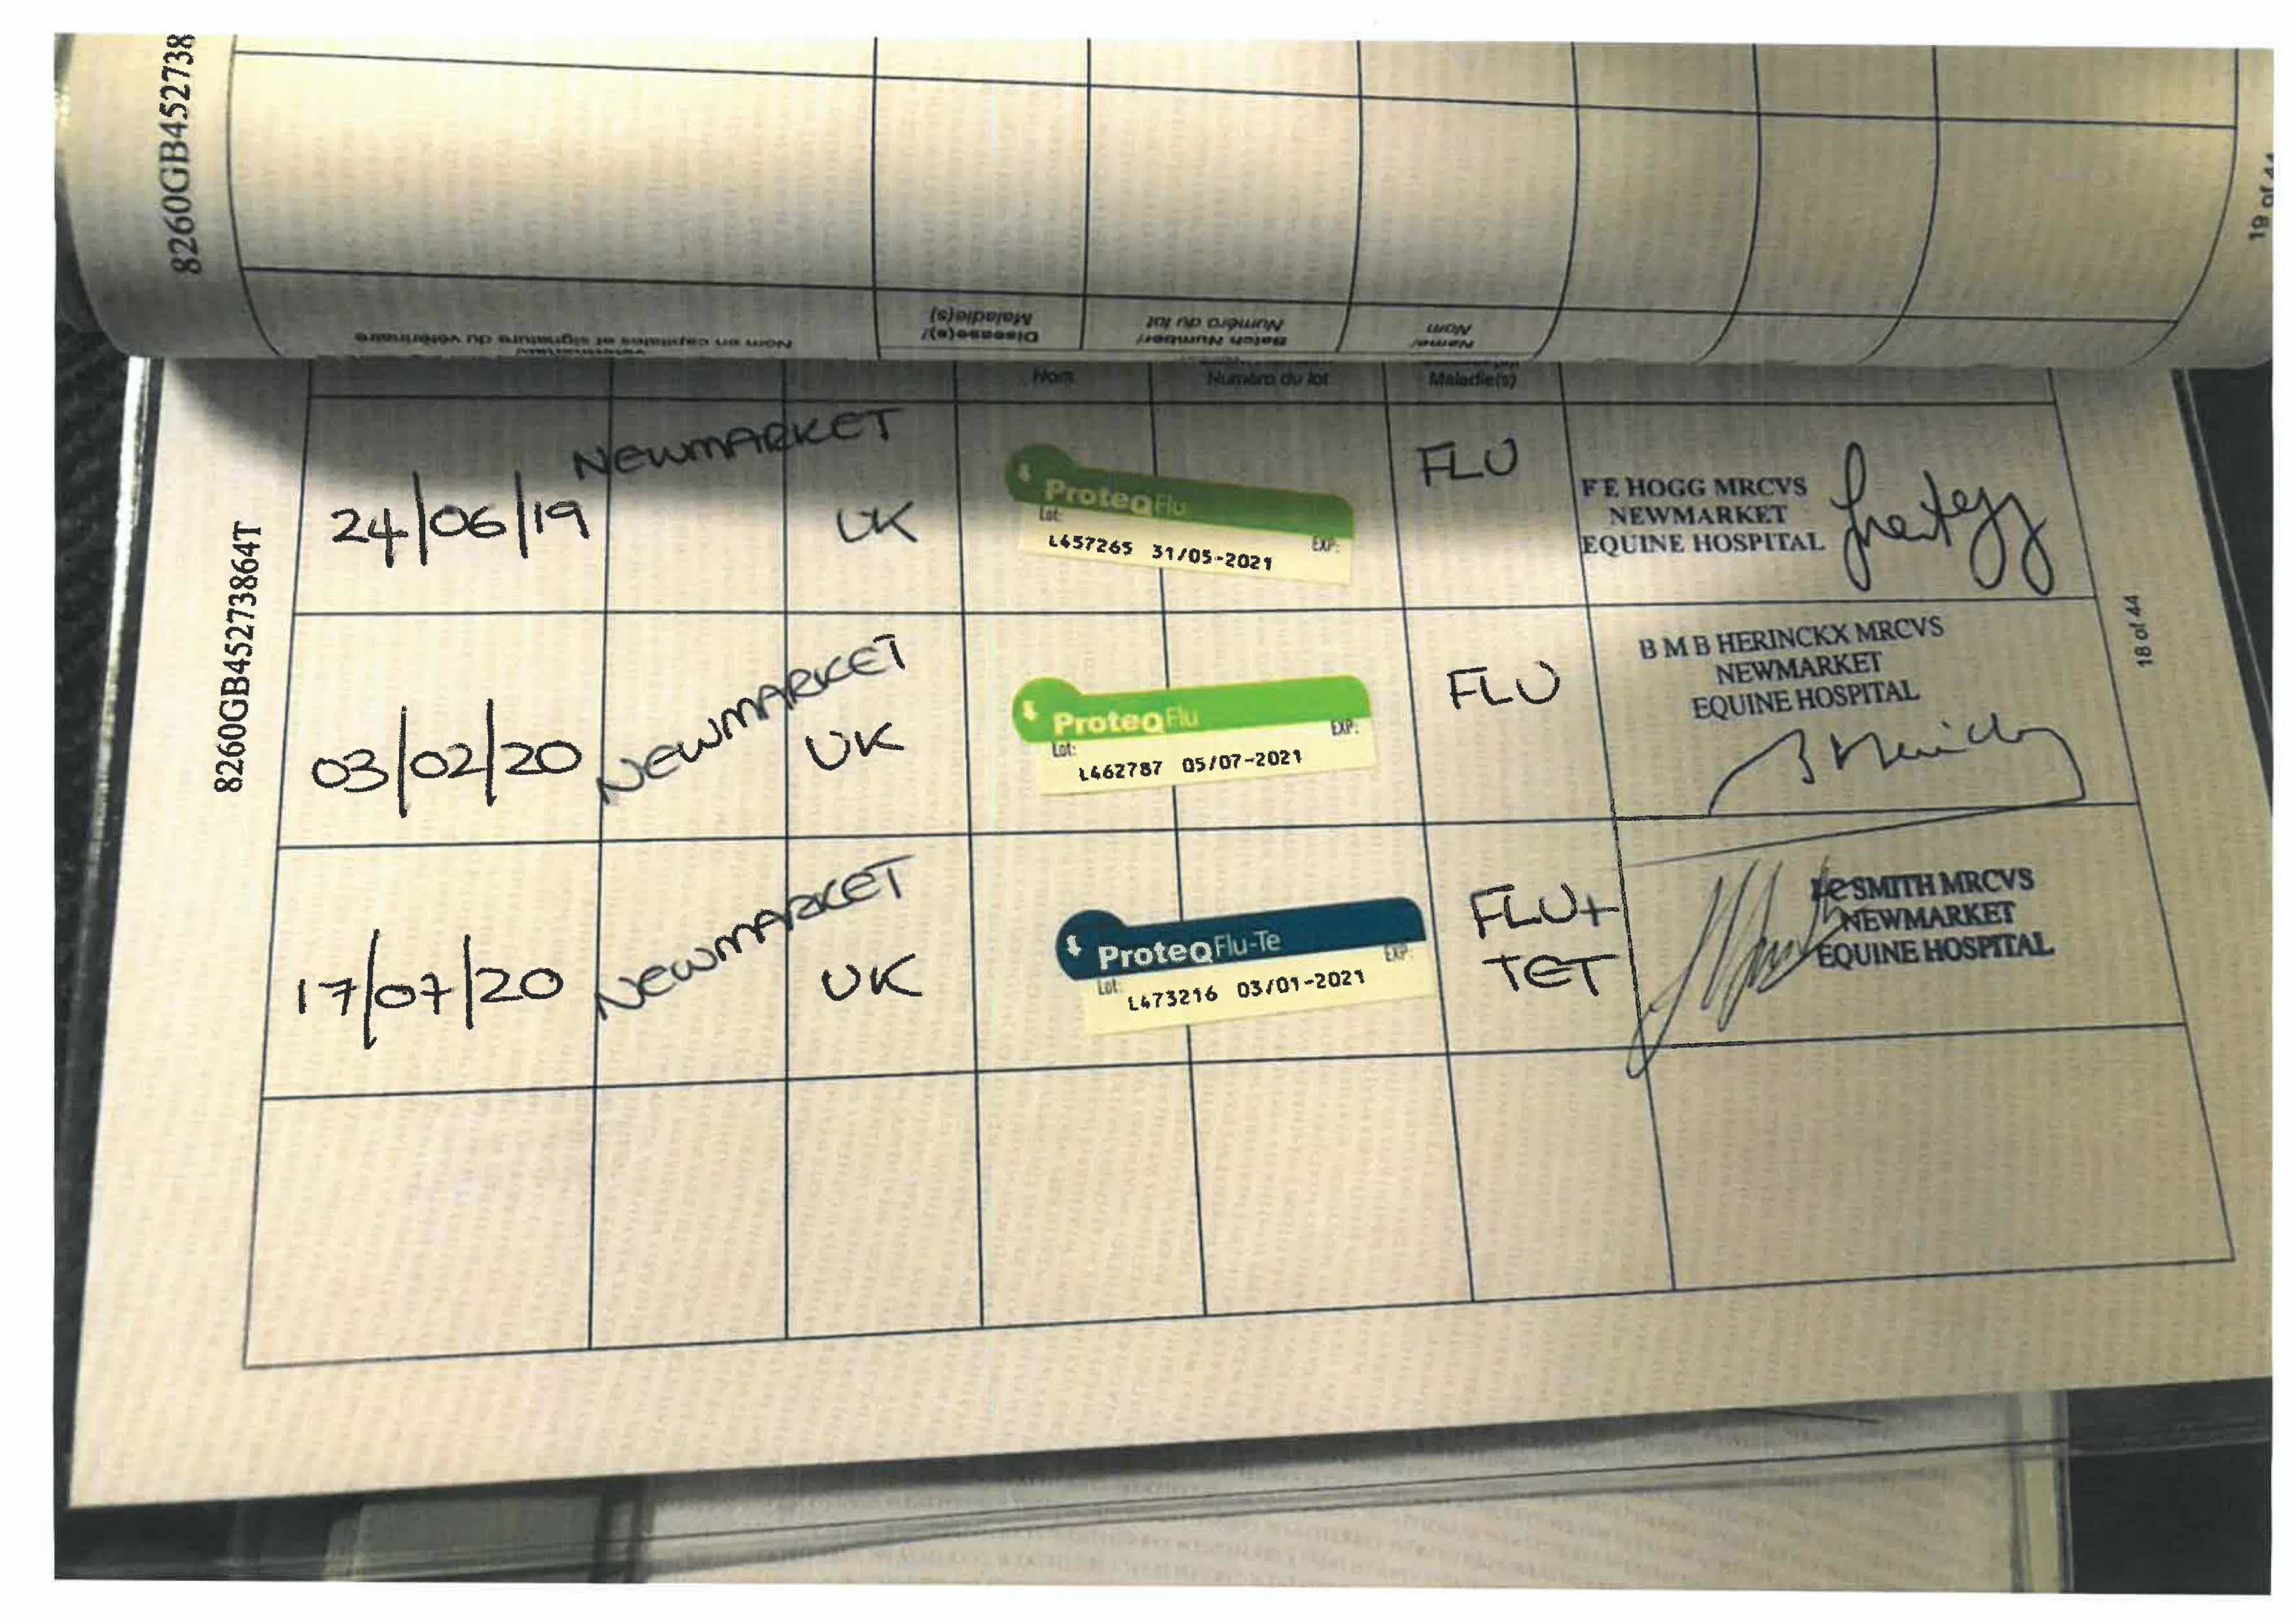 8260GB452738
19 of 44
Nom en capitales et signature du vétérinaire
Disease(s)/
Maladie(s)
Batch Number/
Numéro du lot
Name/
Nom
Nom
Numéro du lot
Maladie(s)
8260GB45273864T
18 of 44
24/06/19
NEWMARKET
UK
ProteqFlu
Lot: EXP:
L457265 31/05-2021
FLU
F E HOGG MRCVS
NEWMARKET
EQUINE HOSPITAL
03/02/20
NEWMARKET
UK
ProteqFlu
Lot: EXP:
L462787 05/07-2021
FLU
B M B HERINCKX MRCVS
NEWMARKET
EQUINE HOSPITAL
17/07/20
NEWMARKET
UK
ProteqFlu-Te
Lot: EXP:
L473216 03/01-2021
FLU+
TET
SMITH MRCVS
NEWMARKET
EQUINE HOSPITAL